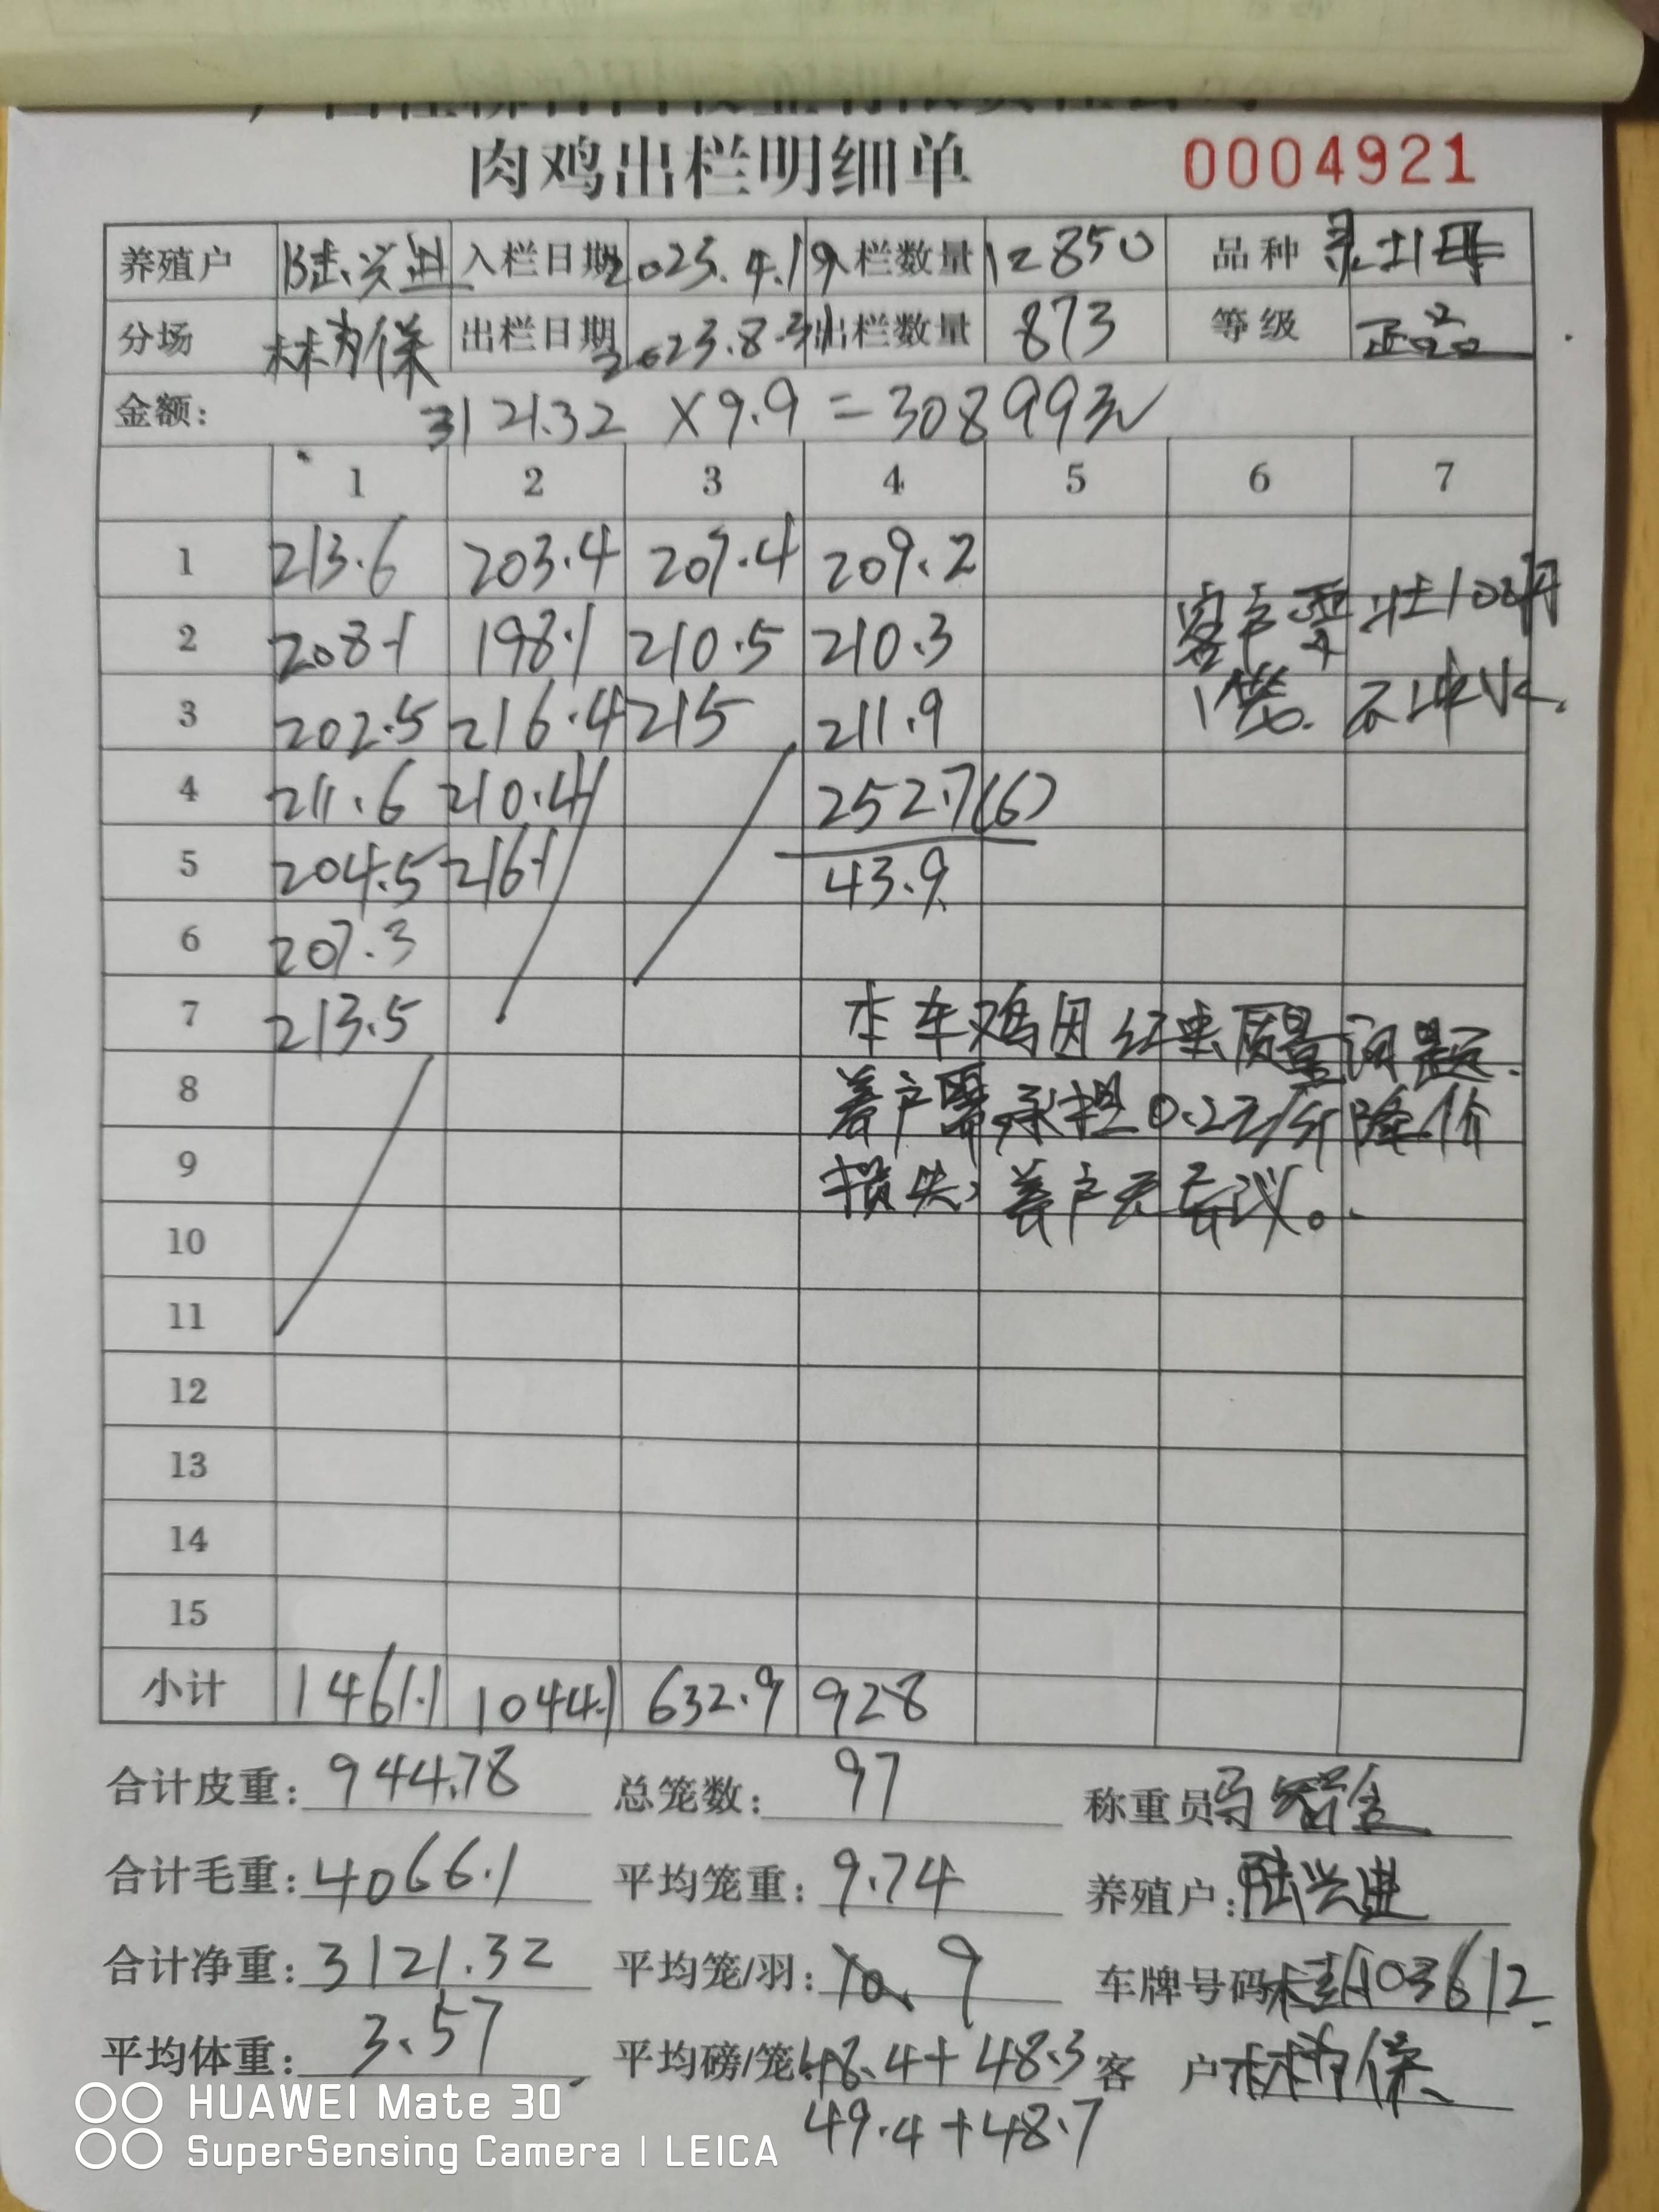 肉鸡出栏明细单 0004921
养殖户 陆兴进 入栏日期 2023.4.19 入栏数量 12850 品种 灵土2母
分场 林为保 出栏日期 2023.8.31 出栏数量 873 等级 正品
金额: 3121.32 ×9.9=30899元
1 2 3 4 5 6 7
1 213.6 203.4 207.4 209.2
2 208.1 198.1 210.5 210.3 客户要 100
3 202.5 216.4 215 211.9
4 211.6 210.1 252.7(6)
5 204.5 216.1 43.9
6 207.3
7 213.5 本车鸡因 质量问题.
8 养户需承担0.2元/斤降价
9 损失,养户无异议。
10
11
12
13
14
15
小计 1461.1 1044.1 632.9 928
合计皮重: 944.78 总笼数: 97 称重员
合计毛重: 4066.1 平均笼重: 9.74 养殖户: 陆兴进
合计净重: 3121.32 平均笼/羽: 9 车牌号码 桂A03612
平均体重: 3.57 平均磅/笼: 48.4+48.3 客 户 林为保
49.4+48.7
HUAWEI Mate 30
SuperSensing Camera | LEICA